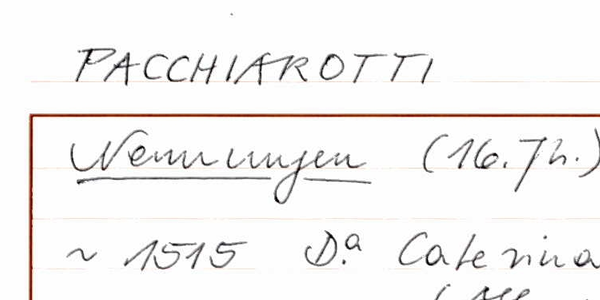 PACCHIAROTTI
Nennungen (16. Jh.)
~ 1515 D.ª Caterina